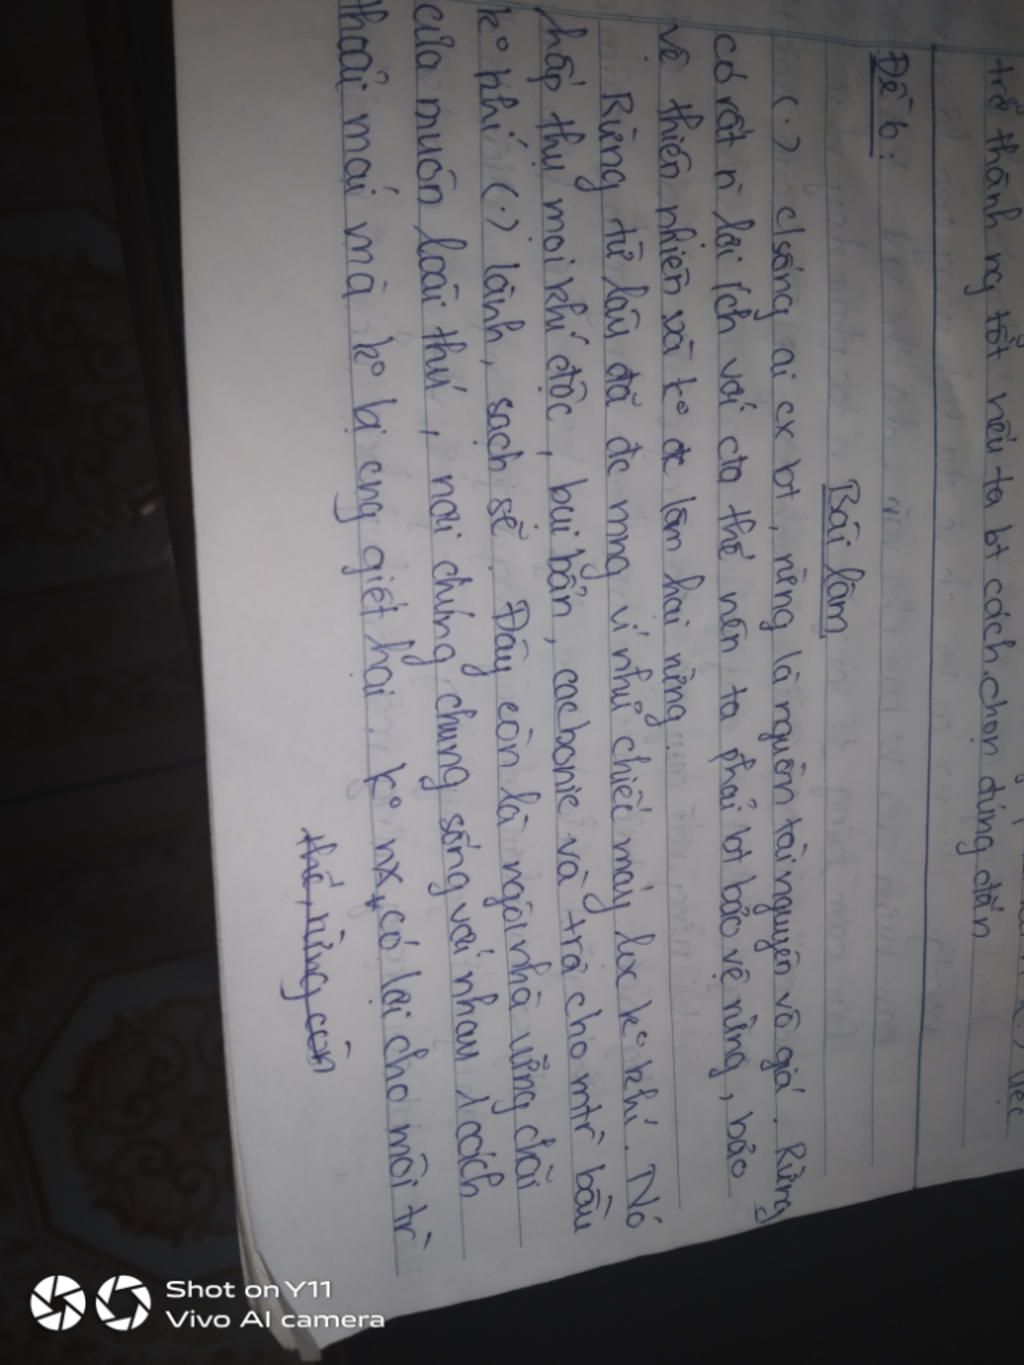 trở thành ng tốt nếu ta bt cách chọn đúng đắn
Đề 6:
Bài làm
(.) csống ai cx bt, rừng là nguồn tài nguyên vô giá. Rừng
có rất n` lợi ích với cta thế nên ta phải bt bảo vệ rừng, bảo
vệ thiên nhiên và ko đc làm hại rừng
Rừng từ lâu đã đc mng ví như chiếc máy lọc ko khí. Nó
hấp thụ mọi khí độc, bụi bẩn, cacbonic và trả cho mtr` bầu
ko khí (.) lành, sạch sẽ. Đây còn là ngôi nhà
của muôn loài thú, nơi chúng chung sống với nhau 1 cách
thoải mái mà ko bị cng giết hại. Ko nx, có lợi cho môi tr`
thế, rừng còn
Shot on Y11
Vivo AI camera